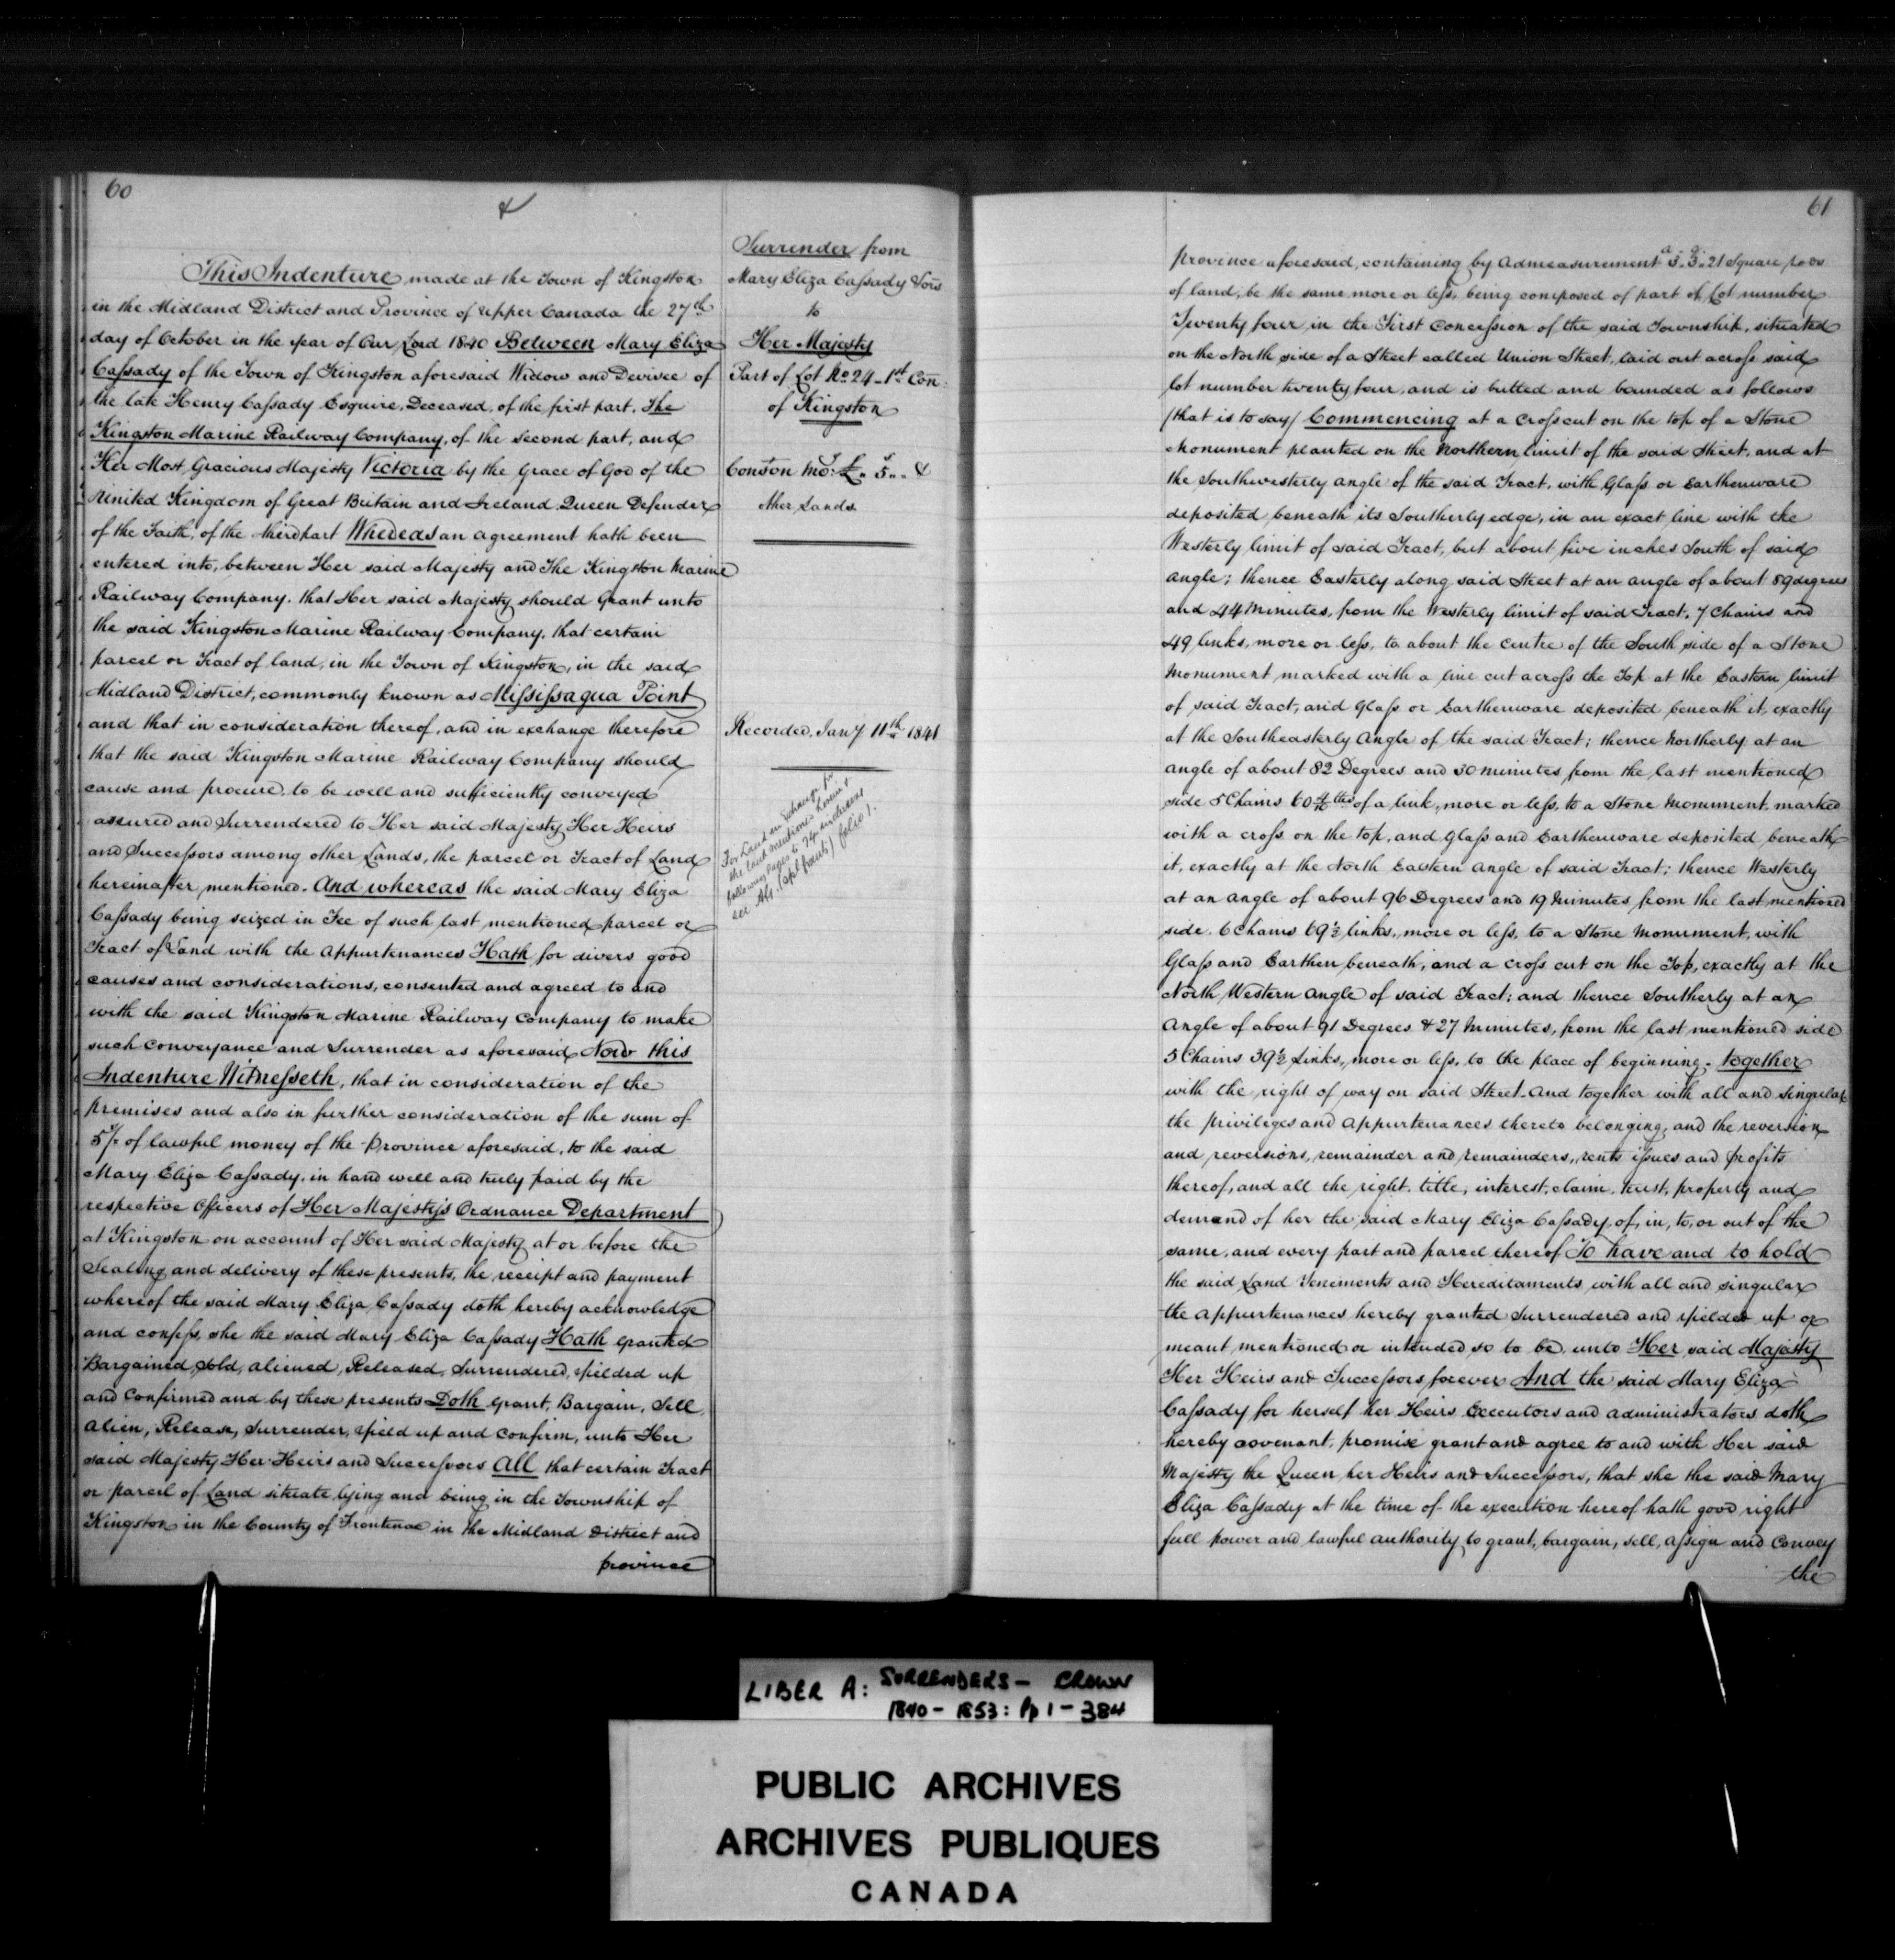 60
This Indenture made at the Town of Kingston
in the Midland District and Province of Upper Canada the 27th
day of October in the year of Our Lord 1840 Between Mary Eliza
Cassady of the Town of Kingston aforesaid Widow and Devisee of
the late Henry Cassady Esquire, Deceased, of the first part, The
Kingston Marine Railway Company, of the Second part, and
Her Most Gracious Majesty Victoria by the Grace of God of the
United Kingdom of Great Britain and Ireland Queen Defender
of the Faith, of the third part Whereas an agreement hath been
entered into, between Her said Majesty and The Kingston Marine
Railway Company, that Her said Majesty should Grant unto
the said Kingston Marine Railway Company, that certain
parcel or Tract of land, in the Town of Kingston, in the said
Midland District, commonly known as Missisaqua Point
and that in consideration thereof, and in exchange therefore
that the said Kingston Marine Railway Company should
cause and procure, to be well and sufficiently conveyed
assured and Surrendered to Her said Majesty Her Heirs
and Successors among other Lands, the parcel or Tract of Land
hereinafter mentioned. And whereas the said Mary Eliza
Cassady being seized in Fee of such last mentioned parcel or
Tract of Land with the Appurtenances Hath for divers good
causes and considerations, consented and agreed to and
with the said Kingston Marine Railway Company to make
such Conveyance and Surrender as aforesaid Now this
Indenture Witnesseth, that in consideration of the
premises and also in further consideration of the sum of
5/- of lawful money of the Province aforesaid, to the said
Mary Eliza Cassady, in hand well and truly paid by the
respective Officers of Her Majesty's Ordnance Department
at Kingston on account of Her said Majesty at or before the
Sealing and delivery of these presents, the receipt and payment
whereof the said Mary Eliza Cassady doth hereby acknowledge
and confess, she the said Mary Eliza Cassady Hath Granted
Bargained, sold, aliened, Released, Surrendered, yielded up
and Confirmed and by these presents Doth Grant, Bargain, Sell,
Alien, Release, Surrender, yield up and Confirm, unto Her
said Majesty Her Heirs and Successors All that certain Tract
or parcel of Land situate lying and being in the Township of
Kingston in the County of Frontenac in the Midland District and
province
Surrender from
Mary Eliza Cassady &ors
to
Her Majesty
Part of Lot No 24 - 1st Con:
of Kingston
Conston Mo: £ " 5 " " &
other Lands
Recorded Jany 11th 1841
For Land in Exchange for
the land mentioned herein &
following pages to 74 inclusive
see folio 1.
61
province aforesaid, containing by Admeasurement 3" 3" 21 Square rods
of land, be the same more or less, being composed of part of Lot number
Twenty four in the First Concession of the said Township, situated
on the North side of a Street called Union Street, laid out across said
lot number twenty four, and is butted and bounded as follows
(that is to say) Commencing at a Cross cut on the top of a Stone
Monument planted on the Northern limit of the said Street, and at
the Southwesterly angle of the said Tract, with Glass or Earthenware
deposited beneath its Southerly edge, in an exact line with the
Westerly limit of said Tract, but about five inches South of said
Angle; thence Easterly along said Street at an angle of about 89 degrees
and 44 Minutes, from the Westerly limit of said Tract, 7 Chains and
49 links, more or less, to about the centre of the South side of a Stone
Monument marked with a line cut across the Top at the Eastern limit
of said Tract, and Glass or Earthenware deposited beneath it, exactly
at the Southeasterly Angle of the said Tract; thence Northerly at an
angle of about 82 Degrees and 30 minutes from the last mentioned
side 5 Chains 60 of a link, more or less, to a Stone Monument, marked
with a cross on the top, and Glass and Earthenware deposited beneath
it, exactly at the North Eastern Angle of said Tract; thence Westerly
at an angle of about 96 Degrees and 19 Minutes from the last mentioned
side 6 Chains 69½ links, more or less, to a Stone Monument, with
Glass and Earthen beneath, and a cross cut on the Top, exactly at the
North Western Angle of said Tract; and thence Southerly at an
Angle of about 91 Degrees & 27 Minutes, from the last mentioned side
5 Chains 39½ Links, more or less, to the place of beginning. together
with the right of way on said Street. And together with all and singular
the privileges and appurtenances thereto belonging, and the reversion
and reversions, remainder and remainders, rents issues and profits
thereof, and all the right, title, interest, claim, trust, property and
demand of her the said Mary Eliza Cassady, of, in, to, or out of the
same, and every part and parcel thereof To have and to hold
the said Land Tenements and Hereditaments with all and singular
the appurtenances hereby granted Surrendered and yielded up or
meant mentioned or intended so to be unto Her said Majesty
Her Heirs and Successors forever And the said Mary Eliza
Cassady for herself her Heirs Executors and administrators doth
hereby covenant, promise grant and agree to and with Her said
Majesty the Queen her Heirs and Successors, that she the said Mary
Eliza Cassady at the time of the execution hereof hath good right
full power and lawful authority to grant, bargain, sell, assign and convey
the
LIBER A: SURRENDERS - CROWN
1840 - 1853: Pp 1 - 384
PUBLIC ARCHIVES
ARCHIVES PUBLIQUES
CANADA